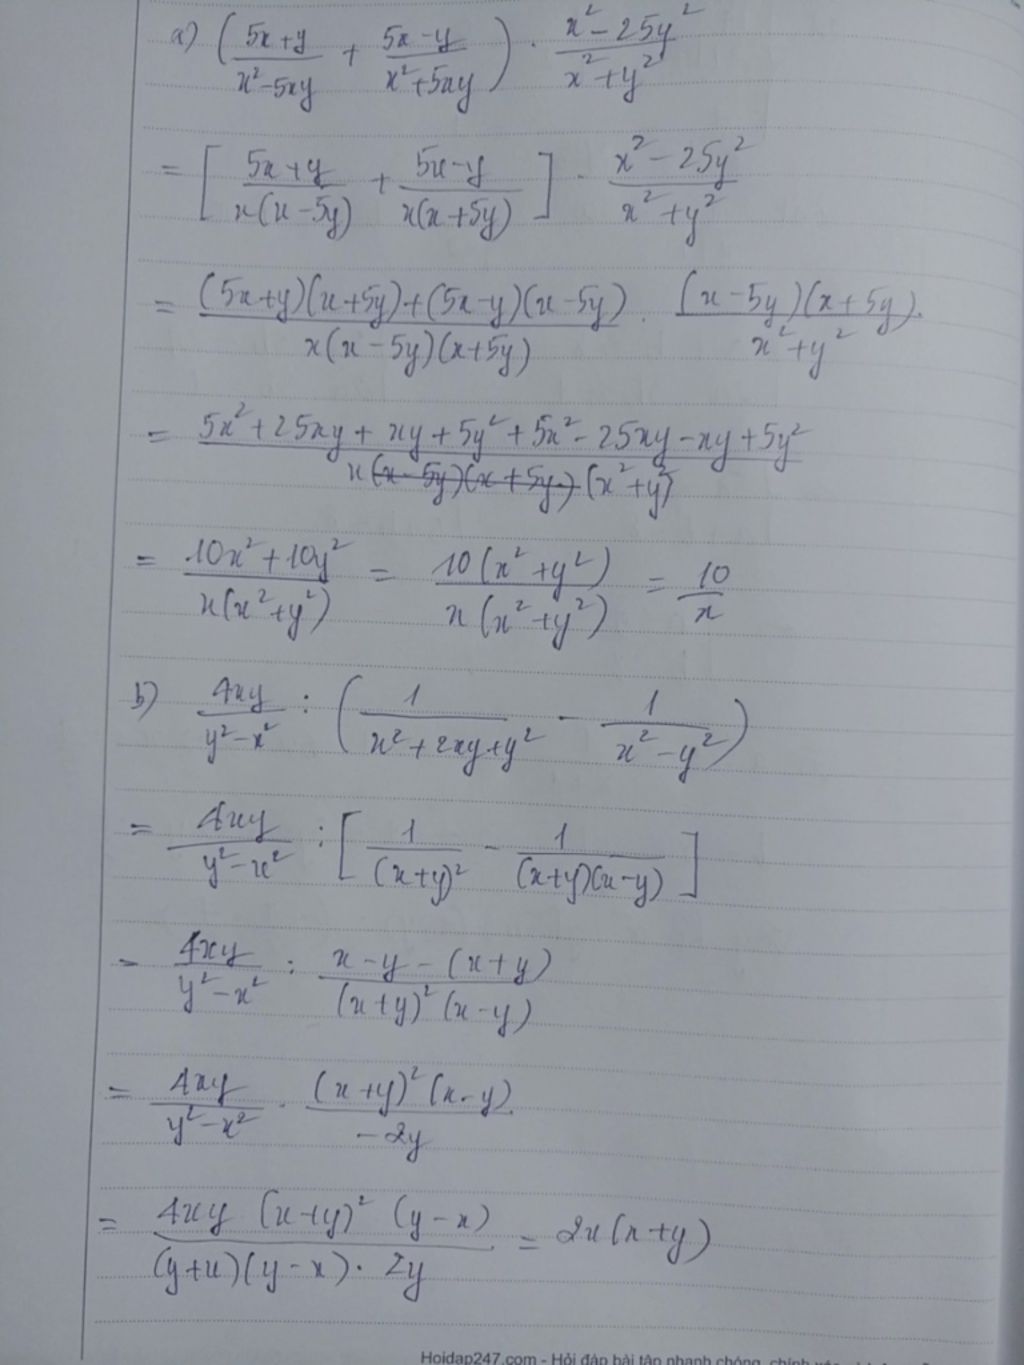 a) ( (5x+y)/(x²-5xy) + (5x-y)/(x²+5xy) ) . (x²-25y²)/(x²+y²)
= [ (5x+y)/(x(x-5y)) + (5x-y)/(x(x+5y)) ] . (x²-25y²)/(x²+y²)
= ((5x+y)(x+5y)+(5x-y)(x-5y))/(x(x-5y)(x+5y)) . ((x-5y)(x+5y).)/(x²+y²)
= (5x²+25xy+xy+5y²+5x²-25xy-xy+5y²)/(x(x-5y)(x+5y)(x²+y²))
= (10x²+10y²)/(x(x²+y²)) = (10(x²+y²))/(x(x²+y²)) = 10/x
b) (4xy)/(y²-x²) : ( 1/(x²+2xy+y²) - 1/(x²-y²) )
= (4xy)/(y²-x²) : [ 1/((x+y)²) - 1/((x+y)(x-y)) ]
= (4xy)/(y²-x²) : (x-y-(x+y))/((x+y)²(x-y))
= (4xy)/(y²-x²) . ((x+y)²(x-y))/(-2y)
= (4xy (x+y)² (y-x))/((y+x)(y-x).2y) = 2x(x+y)
Hoidap247.com - Hỏi đáp bài tập nhanh chóng, chính